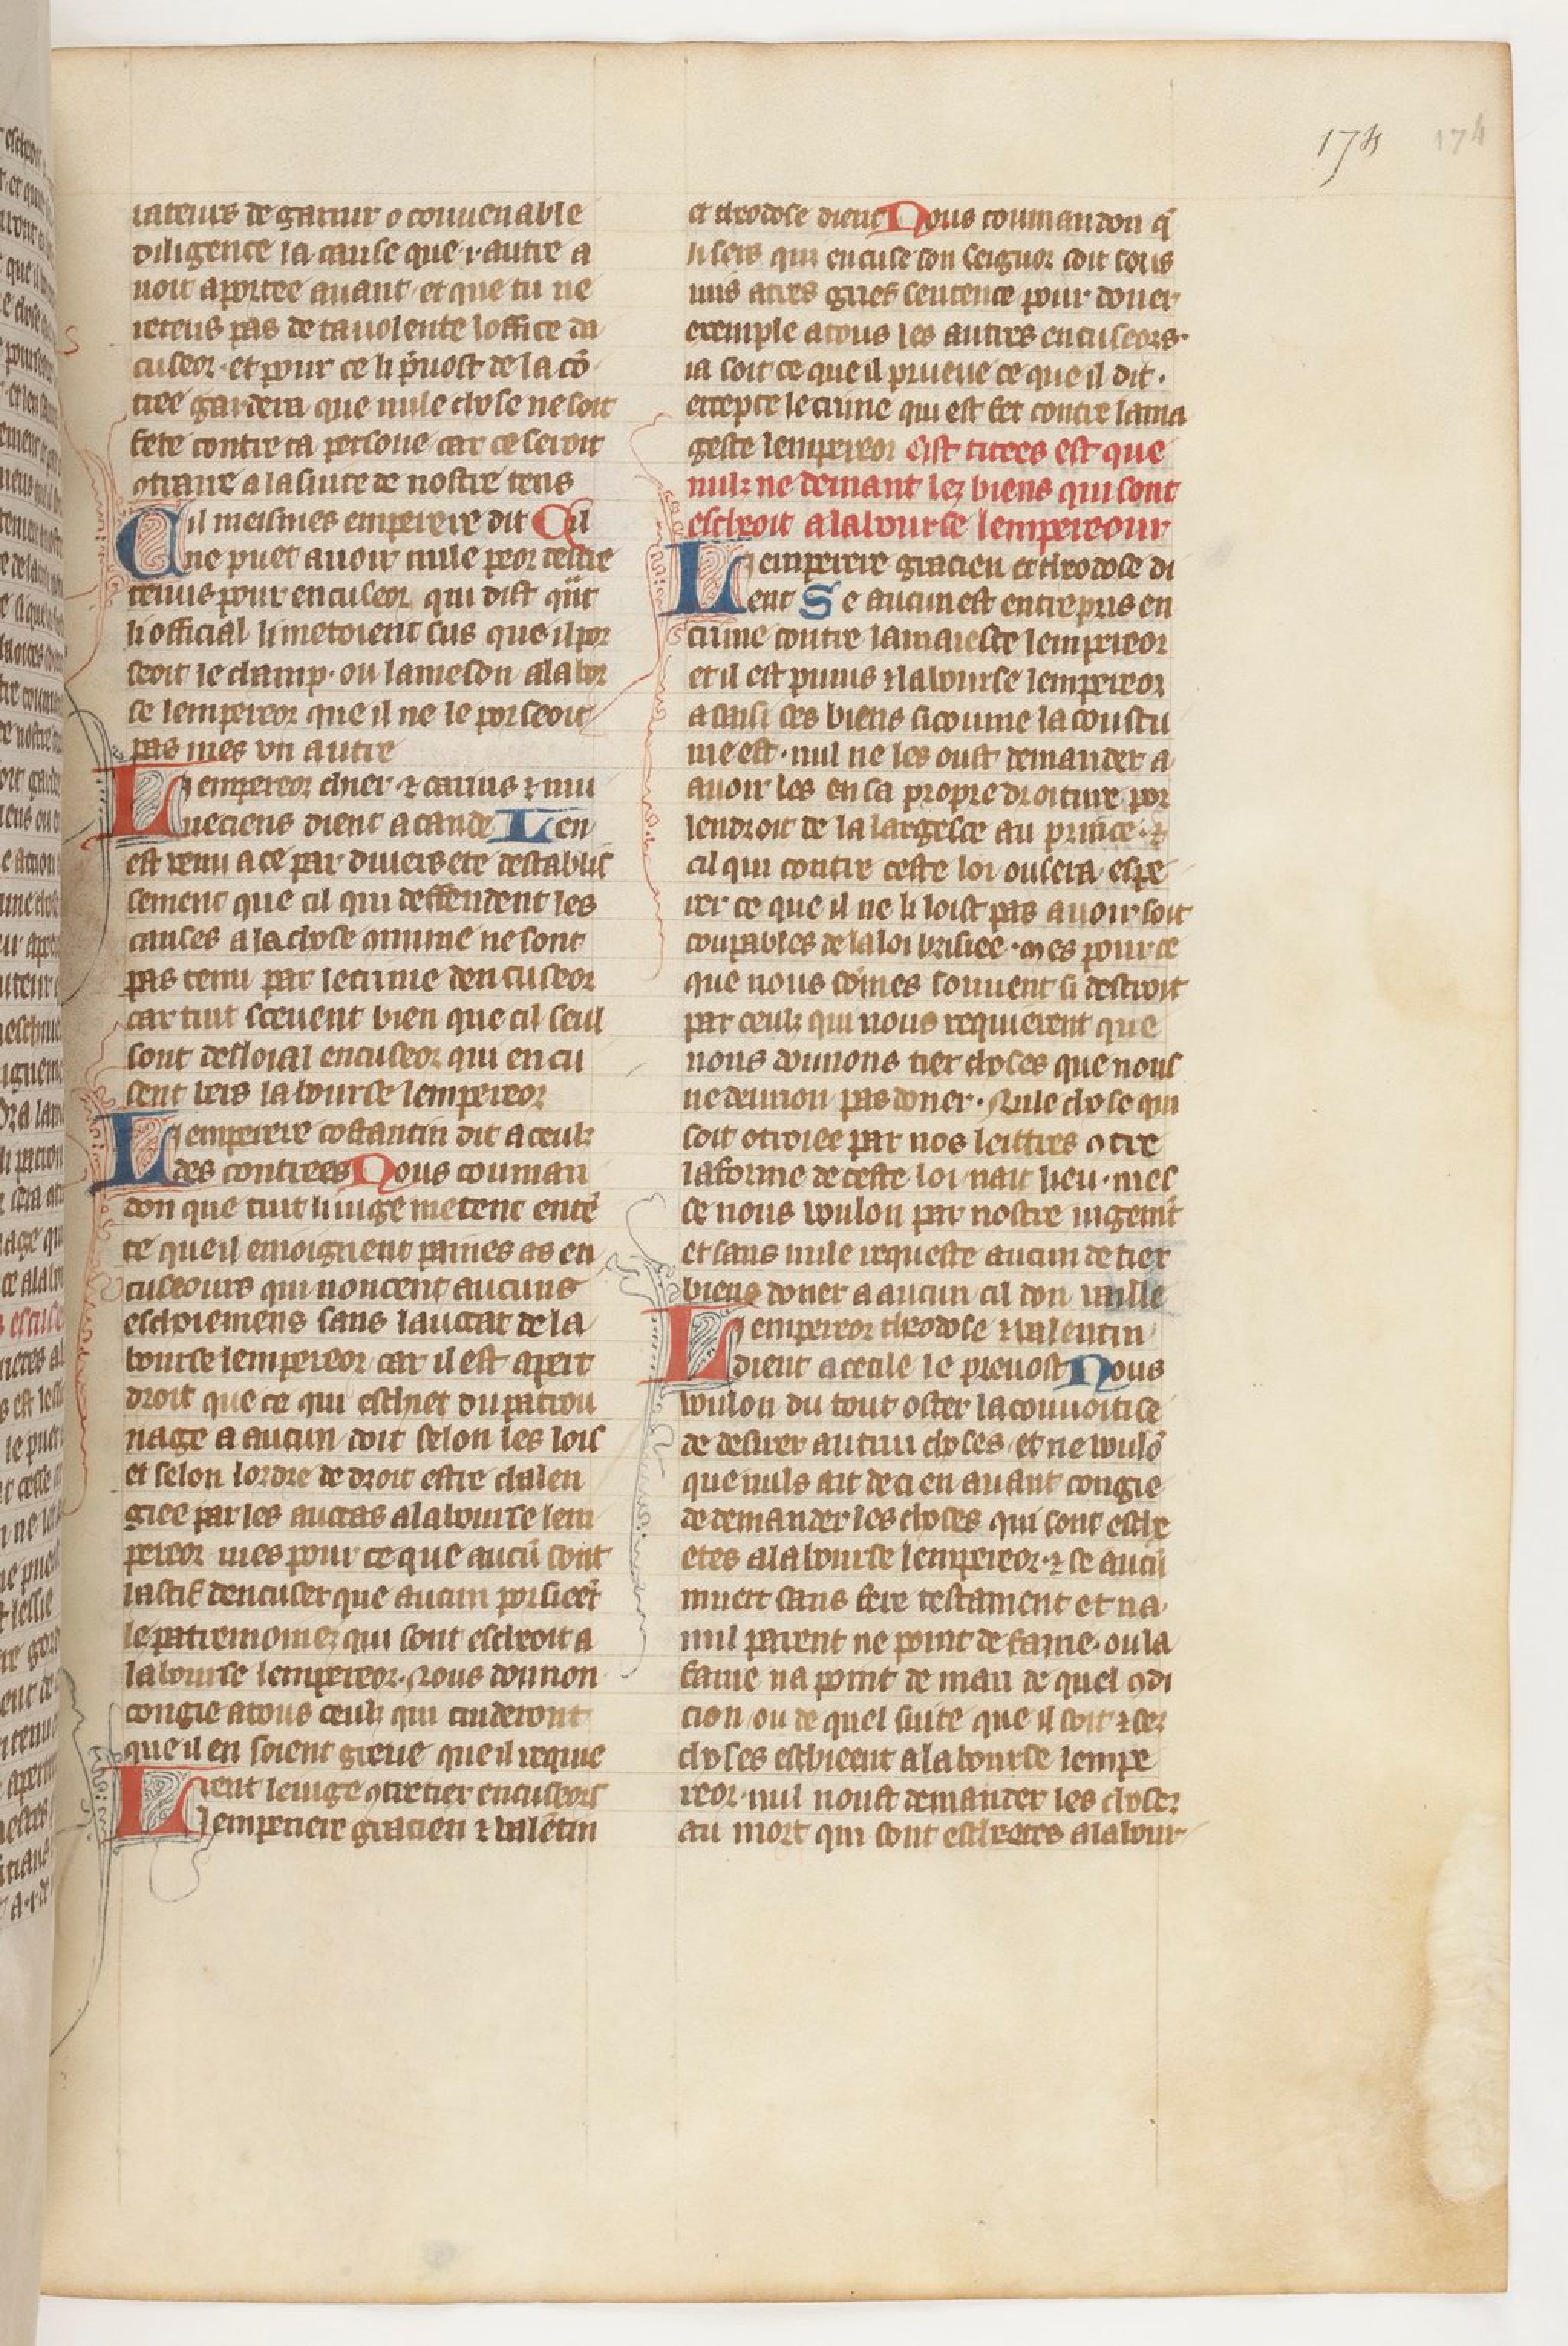 174 174
iateurs de garnir o conuenable
diligence la cause que .i. autre a
uoit aportee auant et que tu ne
reteus pas de ta uolente loffice da
cuseor. et pour ce li p̃uost de la cō
tree gardera que nule chose ne soit
fete contre ta persone car ce seroit
ꝯtraire a la suite de nostre tens
Cil meismes emperere dit Cil
ne puet auoir nule peor destre
tenus pour encuseor qui dist q̃nt
li official li metoient sus que il por
seoit le champ. ou la meson a la bor
se lempereor que il ne le porseoit
pas mes vn autre
Lempereor chier ⁊ carius ⁊ nu
meciens dient a cande Len
est venu a ce par diuersete destablis
sement que cil qui deffendent les
causes a la chose ꝯmune ne sont
pas tenu par le crime dencuseor
car tuit sceuent bien que cil seul
sont desloial encuseor qui encu
sent vers la bourse lempereor
Lemperere costantin dit a ceulz
des contrees Nous couman
don que tuit li iuge metent entē
te que il emoignent paines as en
cuseours qui noncent aucuns
eschoiemens sans lauctat de la
bourse lempereor car il est apert
droit que ce qui eschiet du patron
nage a aucun doit selon les lois
et selon lordre de droit estre chalen
giee par les auctas a la bourse lem
pereor mes pour ce que aucū sont
lastif dencuser que aucun porsieēt
le patremoinez qui sont escheoit a
la bourse lempereor. Nous donnon
congie a tous ceulz qui cuideront
que il en soient greue que il requie
rent le iuge ꝯtre tier encuseors
Lemperiere gracien ⁊ valētin
et theodose dient Nous coumandon q̃
li sers qui encuse son seignor soit sous
mis a tres grief sentence pour doner
exemple a tous les autres encuseors.
ia soit ce que il prueue ce que il dit.
excepte le crime qui est fet contre la ma
geste lempereor Cist titres est que
nulz ne demant lez biens qui sont
escheoit a la bourse lempereour
Lemperere gracien et theodose di
ent Se aucun est entrepris en
crime contre la maieste lempereor
et il est punis ⁊ la bourse lempereor
a ainsi ses biens si coume la coustu
me est. nul ne les oust demander a
auoir les en sa propre droiture por
lendroit de la largesce au prince. ⁊
cil qui contre ceste loi ousera espe
rer ce que il ne li loist pas auoir soit
coupables de la loi brisiee. mes pour ce
que nous sōmes souuent si destroit
par ceulz qui nous requierent que
nous donnons tier choses que nous
ne deurion pas doner. Nule chose qui
soit otroiee par nos leittres ꝯtre
la forme de ceste loi nait lieu. mes
se nous voulon par nostre iugem̃t
et sans nule requeste aucun de tier
biens doner a aucun cil don vaille
Lempereor theodose ⁊ valentin
dient a cecile le preuost Nous
voulon du tout oster la couuoitise
de desirer autrui choses et ne voulō
que nuls ait de ci en auant congie
de demander les choses qui sont esche
etes a la bourse lempereor. ⁊ se aucū
muert sans fere testament et na
nul parent ne point de fame. ou la
fame na point de mari de quel ꝯdi
cion ou de quel suite que il soit ⁊ sez
choses eschieent a la bourse lempe
reor. nul noust demander les chosez
au mort qui sont escheetes a la bour